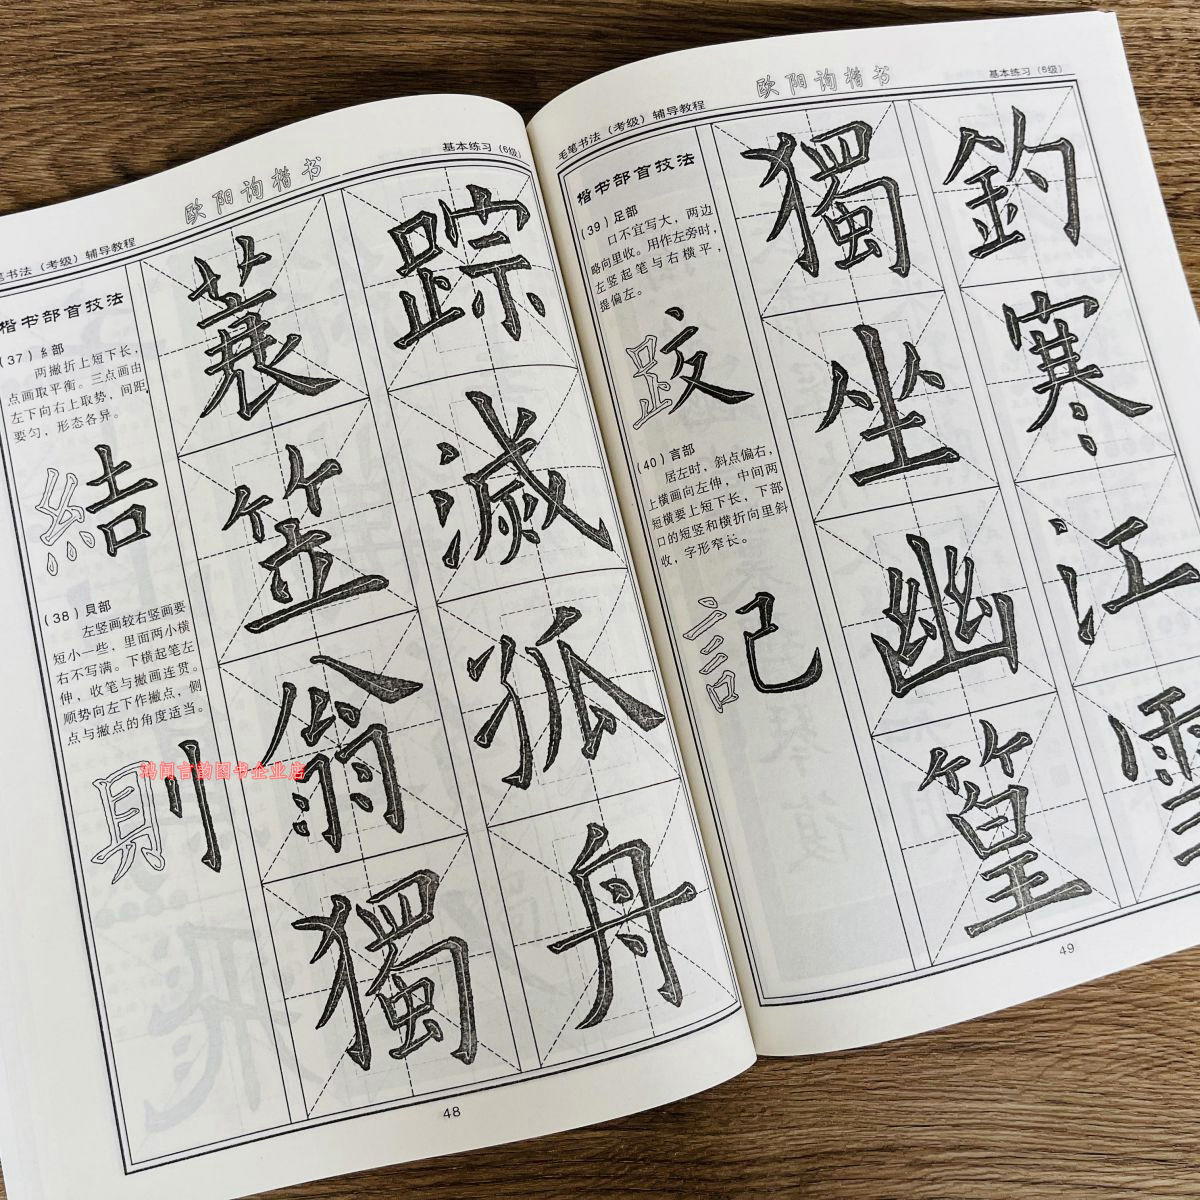 毛笔书法（考级）辅导教程
欧阳询楷书
基本练习（6级）
楷书部首技法
（37）纟部
两撇折上短下长，
点画取平衡。三点画由
左下向右上取势，间距
要匀，形态各异。
結
（38）貝部
左竖画较右竖画要
短小一些，里面两小横
右不写满。下横起笔左
伸，收笔与撇画连贯。
顺势向左下作撇点，侧
点与撇点的角度适当。
則
踪滅孤舟
蓑笠翁獨
48
毛笔书法（考级）辅导教程
欧阳询楷书
基本练习（6级）
楷书部首技法
（39）足部
口不宜写大，两边
略向里收。用作左旁时，
左竖起笔与右横平，
提偏左。
跤
（40）言部
居左时，斜点偏右，
上横画向左伸，中间两
短横要上短下长，下部
口的短竖和横折向里斜
收，字形窄长。
記
釣寒江雪
獨坐幽篁
49
鸿间言韵图书企业店